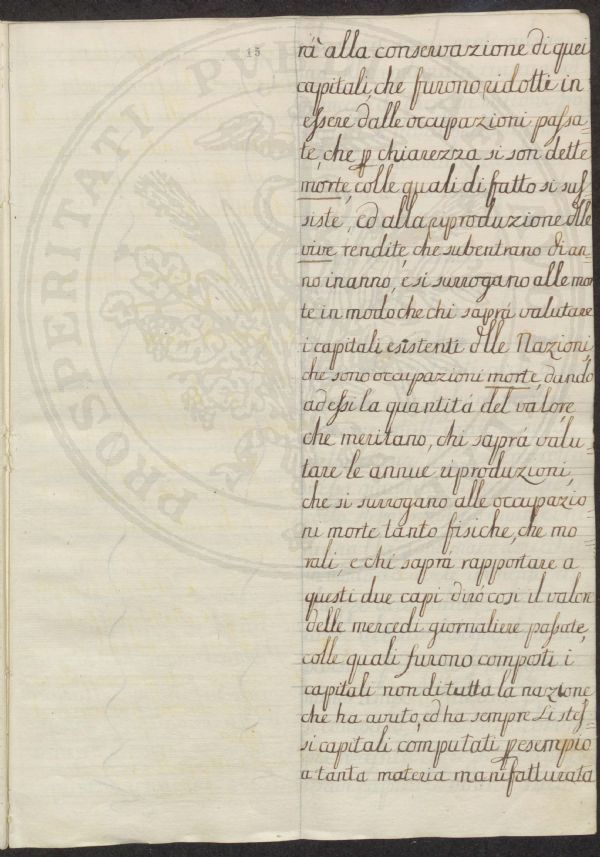 15
rà alla conservazione di quei
capitali, che furono ridotti in
essere dalle occupazioni passa=
te, che p chiarezza si son dette
morte, colle quali di fatto si sus
siste, ed alla riproduzione dlle
vive rendite, che subentrano di an=
no in anno, e si surrogano alle mor
te in modo che chi saprá valutare
i capitali esistenti dlle Nazioni,
che sono occupazioni morte, dando
ad essi la quantitá del valore
che meritano, chi saprá valu=
tare le annue riproduzioni,
che si surrogano alle occupazio=
ni morte tanto fisiche, che mo
rali, e chi saprá rapportare a
questi due capi diró cosi il valore
delle mercedi giornaliere passate,
colle quali furono composti i
capitali non di tutta la nazione
che ha avuto, ed ha sempre li stes=
si capitali computati p esempio
a tanta materia manifatturata
PROSPERITATI PUBLICAE